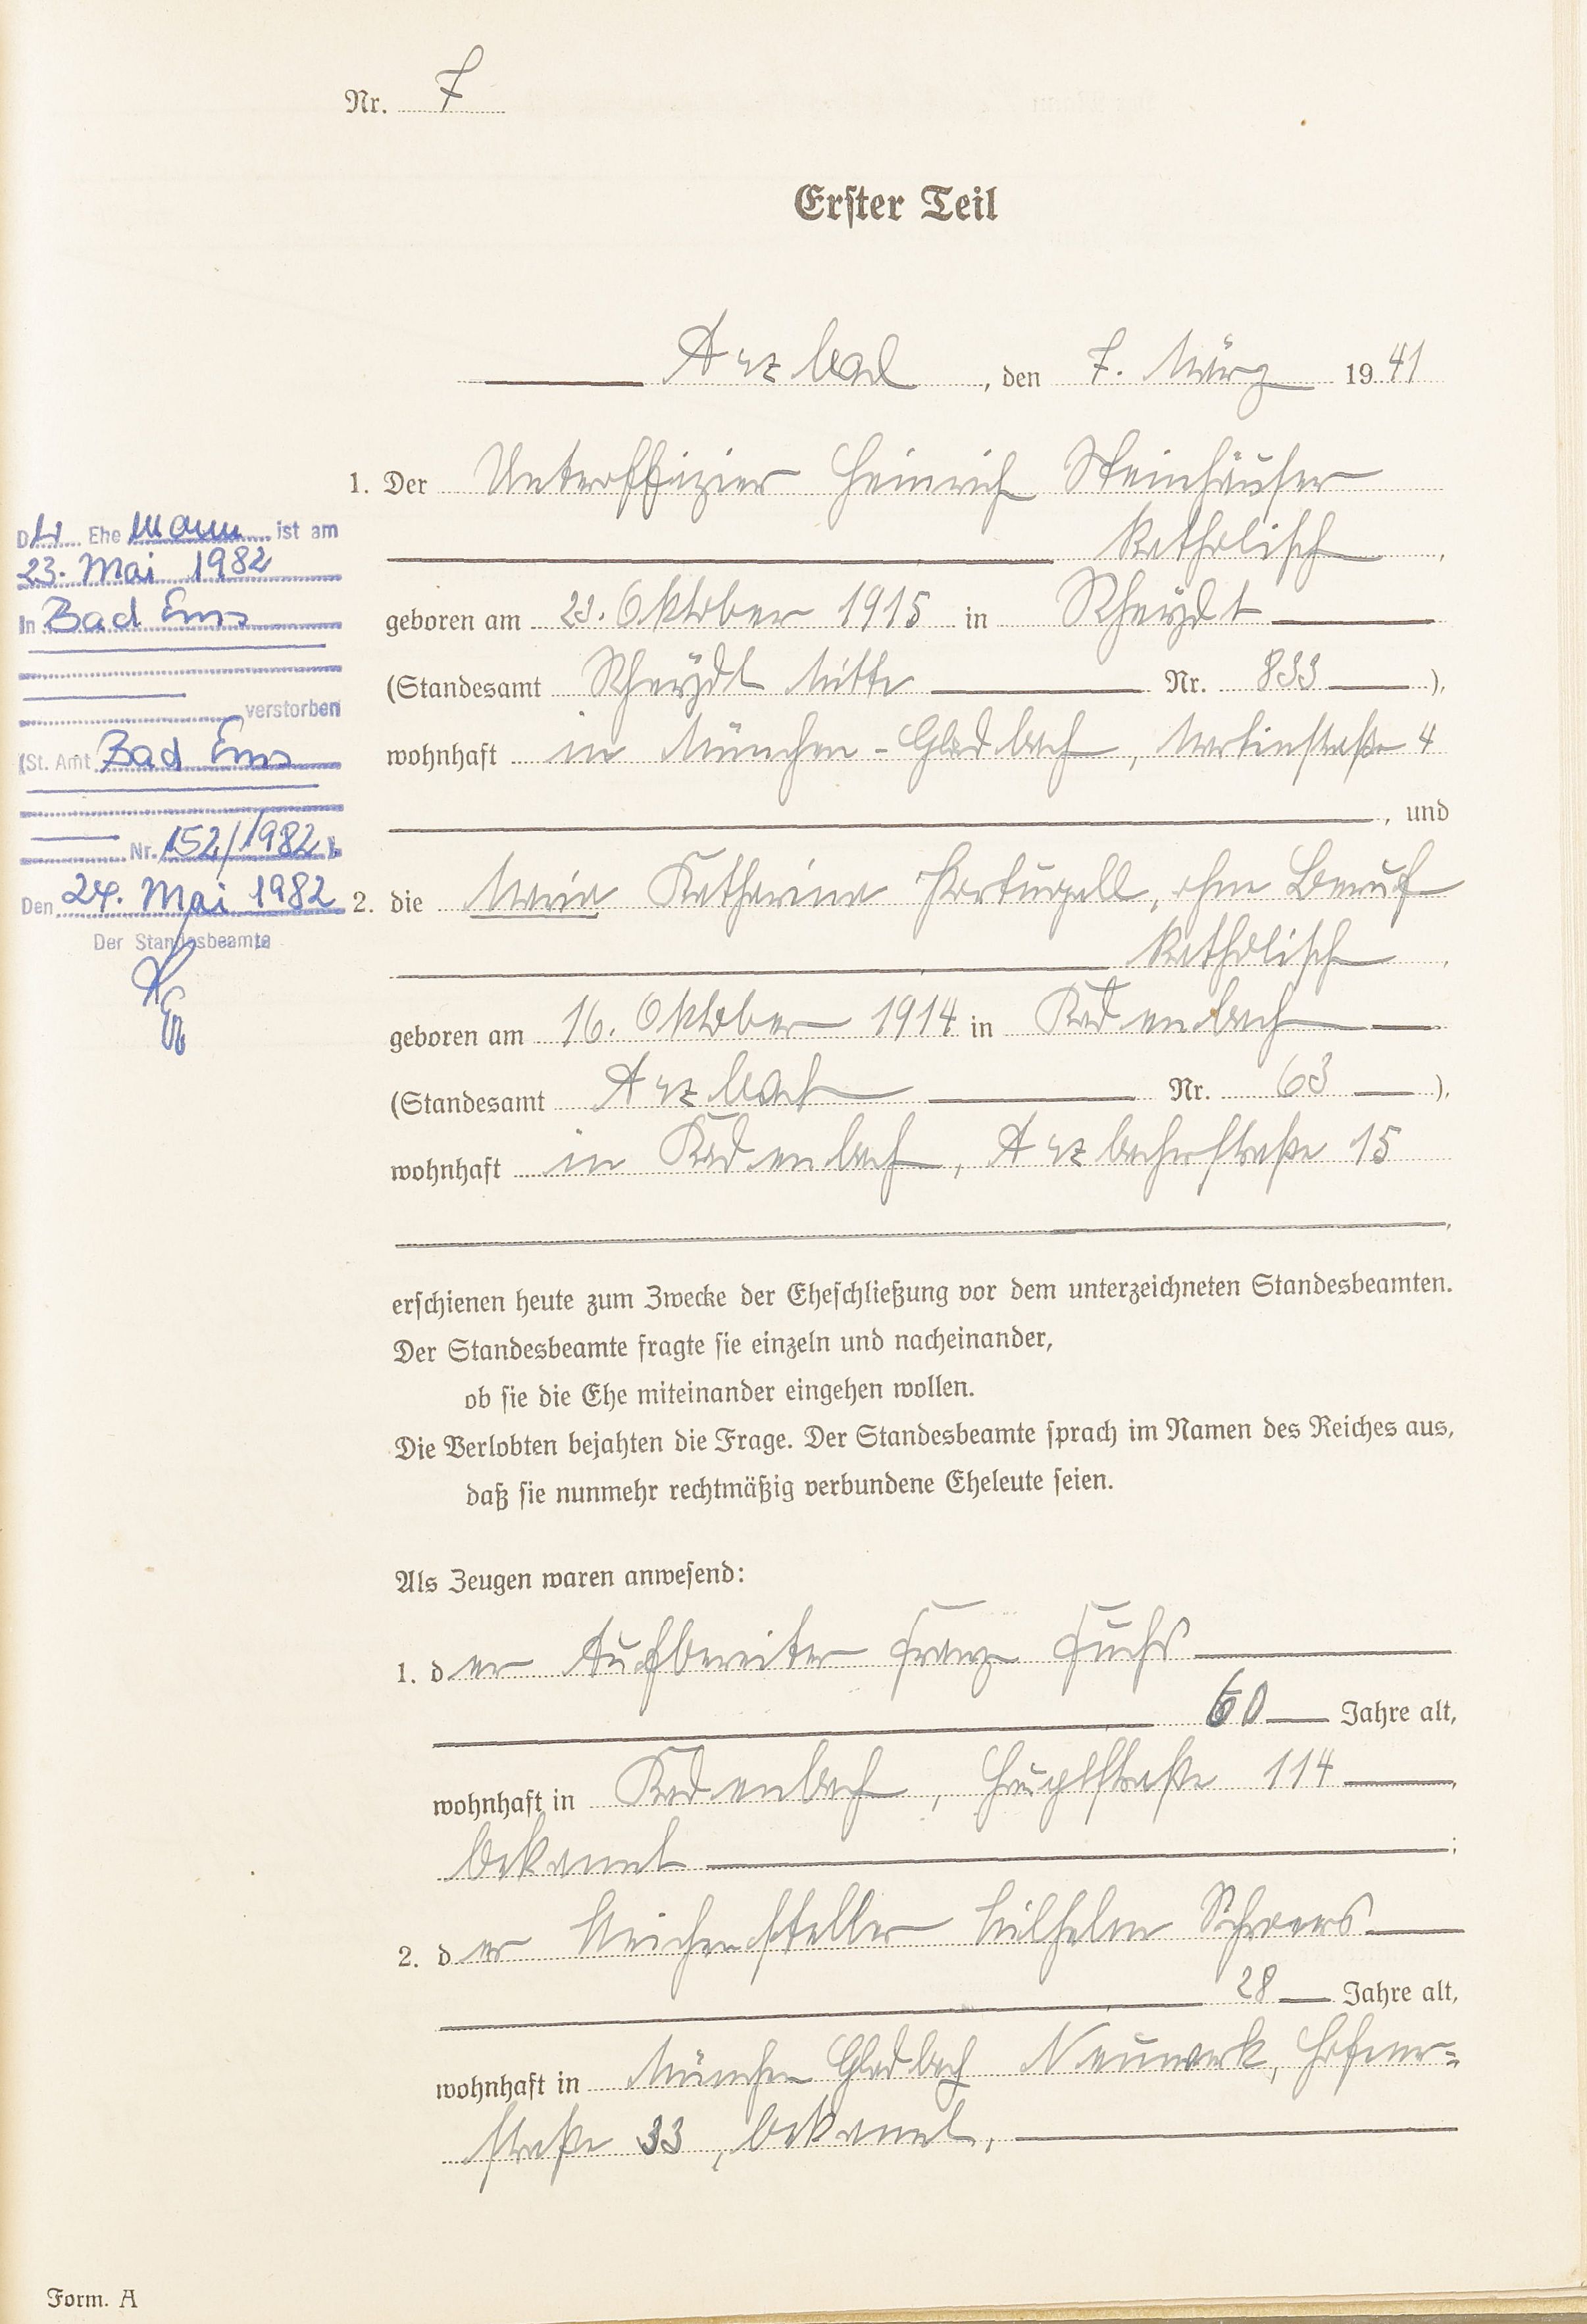 Nr. 7
Erster Teil
Arzbach, den 7. März 1941
1. Der Unteroffizier Heinrich Steinhäuser
katholisch,
geboren am 23. Oktober 1915 in Rheydt
(Standesamt Rheydt Mitte Nr. 833),
wohnhaft in München-Gladbach, Martinstraße 4
, und
2. die Maria Katharina Portugall, ohne Beruf
katholisch,
geboren am 16. Oktober 1914 in Kadenbach
(Standesamt Arzbach Nr. 63),
wohnhaft in Kadenbach, Arzbacherstraße 15
,
erschienen heute zum Zwecke der Eheschließung vor dem unterzeichneten Standesbeamten.
Der Standesbeamte fragte sie einzeln und nacheinander,
ob sie die Ehe miteinander eingehen wollen.
Die Verlobten bejahten die Frage. Der Standesbeamte sprach im Namen des Reiches aus,
daß sie nunmehr rechtmäßig verbundene Eheleute seien.
Als Zeugen waren anwesend:
1. der Aufbereiter Franz Fuchs
60 Jahre alt,
wohnhaft in Kadenbach, Hauptstraße 114,
bekannt;
2. der Weichensteller Wilhelm Schroers
28 Jahre alt,
wohnhaft in München Gladbach Neuwerk, Hofener-
straße 33, bekannt,
Der Ehe Mann ist am
23. Mai 1982
in Bad Ems
verstorben
(St. Amt Bad Ems
Nr. 152/1982).
Den 24. Mai 1982
Der Standesbeamte
Form. A